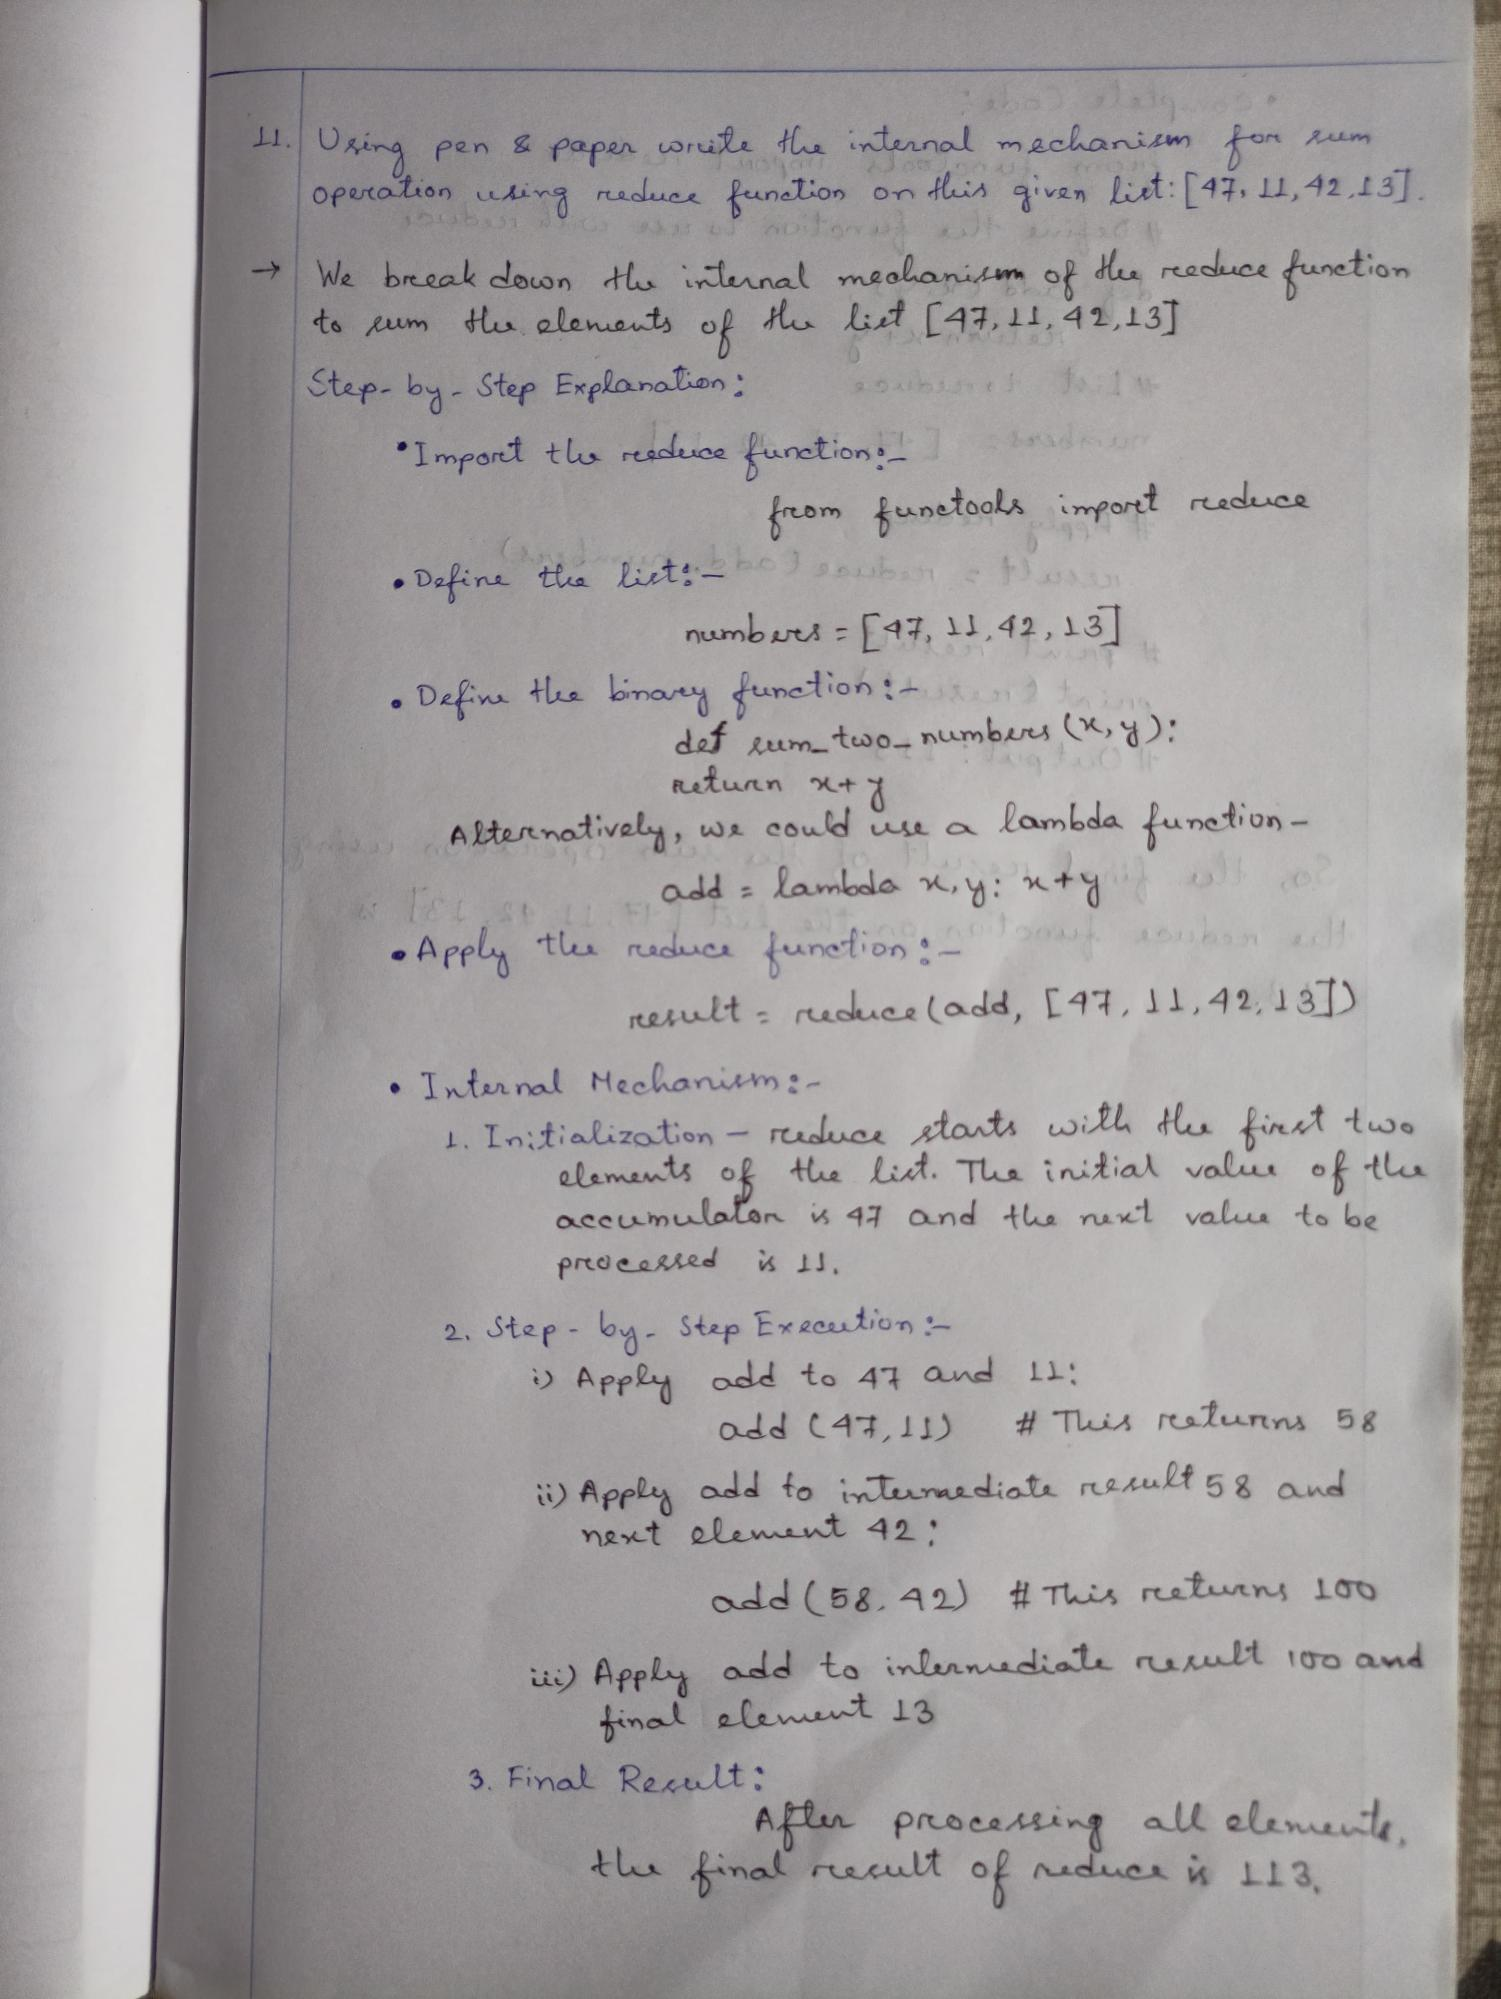 11. Using pen & paper write the internal mechanism for sum
operation using reduce function on this given list: [47, 11, 42, 13].
→ We break down the internal mechanism of the reduce function
to sum the elements of the list [47, 11, 42, 13]
Step-by-Step Explanation:
• Import the reduce function:-
from functools import reduce
• Define the list:-
numbers = [47, 11, 42, 13]
• Define the binary function:-
def sum_two_numbers (x, y):
return x+y
Alternatively, we could use a lambda function-
add = lambda x, y: x+y
• Apply the reduce function:-
result = reduce(add, [47, 11, 42, 13])
• Internal Mechanism:-
1. Initialization - reduce starts with the first two
elements of the list. The initial value of the
accumulator is 47 and the next value to be
processed is 11.
2. Step-by-Step Execution:-
i) Apply add to 47 and 11:
add (47, 11) # This returns 58
ii) Apply add to intermediate result 58 and
next element 42:
add (58, 42) # This returns 100
iii) Apply add to intermediate result 100 and
final element 13
3. Final Result:
After processing all elements,
the final result of reduce is 113.